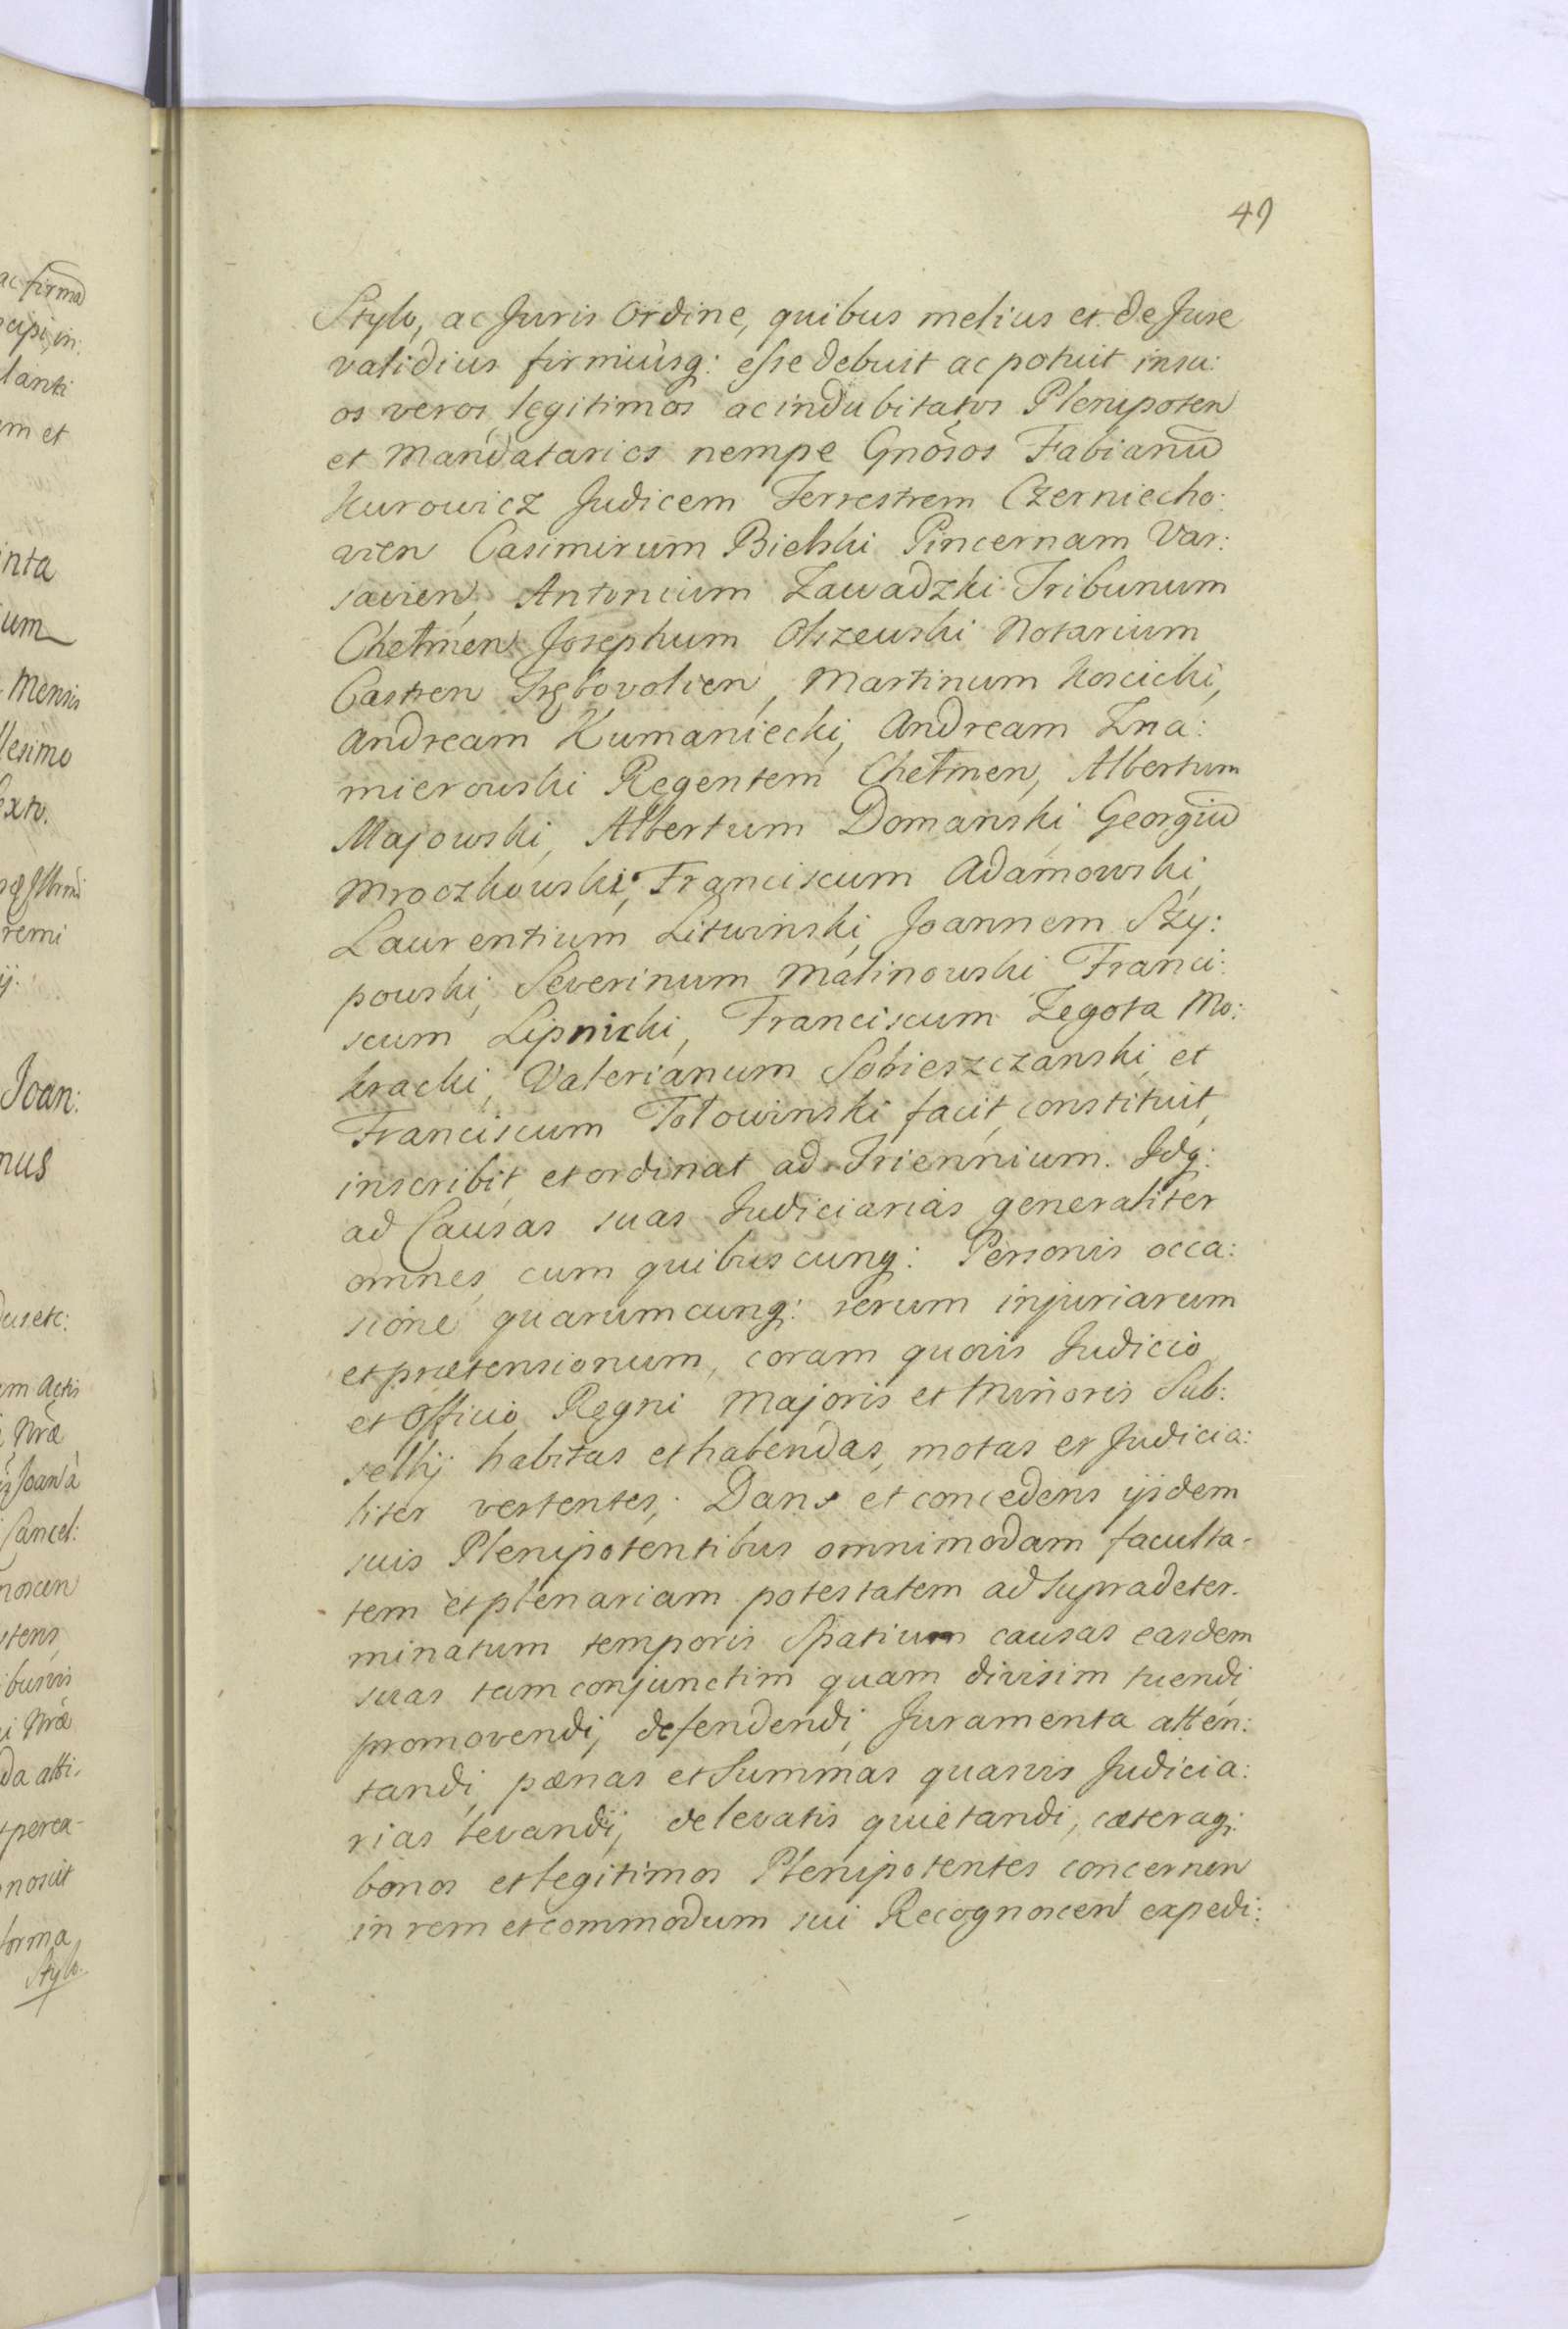 49
Stylo, ac Juris Ordine, quibus melius et de Jure
validius firmiusq: esse debuit ac potuit insu:
os veros, legitimos ac indubitatos Plenipoten
et Mandatarios nempe Gnõsos Fabianũ
Kurowicz Judicem Terrestrem Czerniecho:
vien Casimirum Bielski Pincernam Var:
savien, Antonium Zawadzki Tribunum
Chełmen Josephum Olszewski Notarium
Castren Trębovolien, Martinum Koscicki,
Andream Kumaniecki, Andream Zna:
mierowski Regentem Chełmen, Albertum
Majowski, Albertum Domanski, Georgiũ
Mroczkowski, Franciscum Adamowski,
Laurentium Litwinski, Joannem Szy:
powski, Severinum Malinowski Franci:
scum Lipnicki, Franciscum Zegota Mo:
kracki, Valerianum Sobieszczanski, et
Franciscum Tołowinski facit, constituit,
inscribit, et ordinat ad Triennium. Idq:
ad Causas suas Judiciarias generaliter
omnes, cum quibuscunq: Personis occa:
sione quarumcunq: rerum injuriarum
et prætensionum, coram quovis Judicio
et Officio Regni Majoris et Minoris Sub:
sellij habitas et habendas, motas et Judicia:
liter vertentes; Dans et concedens ijsdem
suis Plenipotentibus omnimodam faculta-
tem et plenariam potestatem ad supradeter-
minatum temporis Spatium causas easdem
suas tam conjunctim quam divisim tuendi
promovendi, defendendi, Juramenta atten:
tandi, pœnas et Summas quasvis Judicia:
rias levandi, de levatis quietandi, cæteraq:
bonos et legitimos Plenipotentes concernen
in rem et commodum sui Recognoscen expedi: